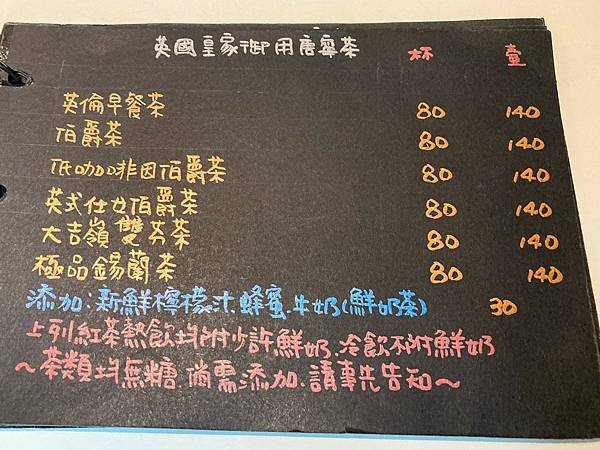 英國皇家御用唐寧茶 杯 壺
英倫早餐茶 80 140
伯爵茶 80 140
低咖啡因伯爵茶 80 140
英式仕女伯爵茶 80 140
大吉嶺雙芬茶 80 140
極品錫蘭茶 80 140
添加:新鮮檸檬汁.蜂蜜.牛奶(鮮奶茶) 30
上列紅茶熱飲均附少許鮮奶.冷飲不附鮮奶
~茶類均無糖.倘需添加.請事先告知~